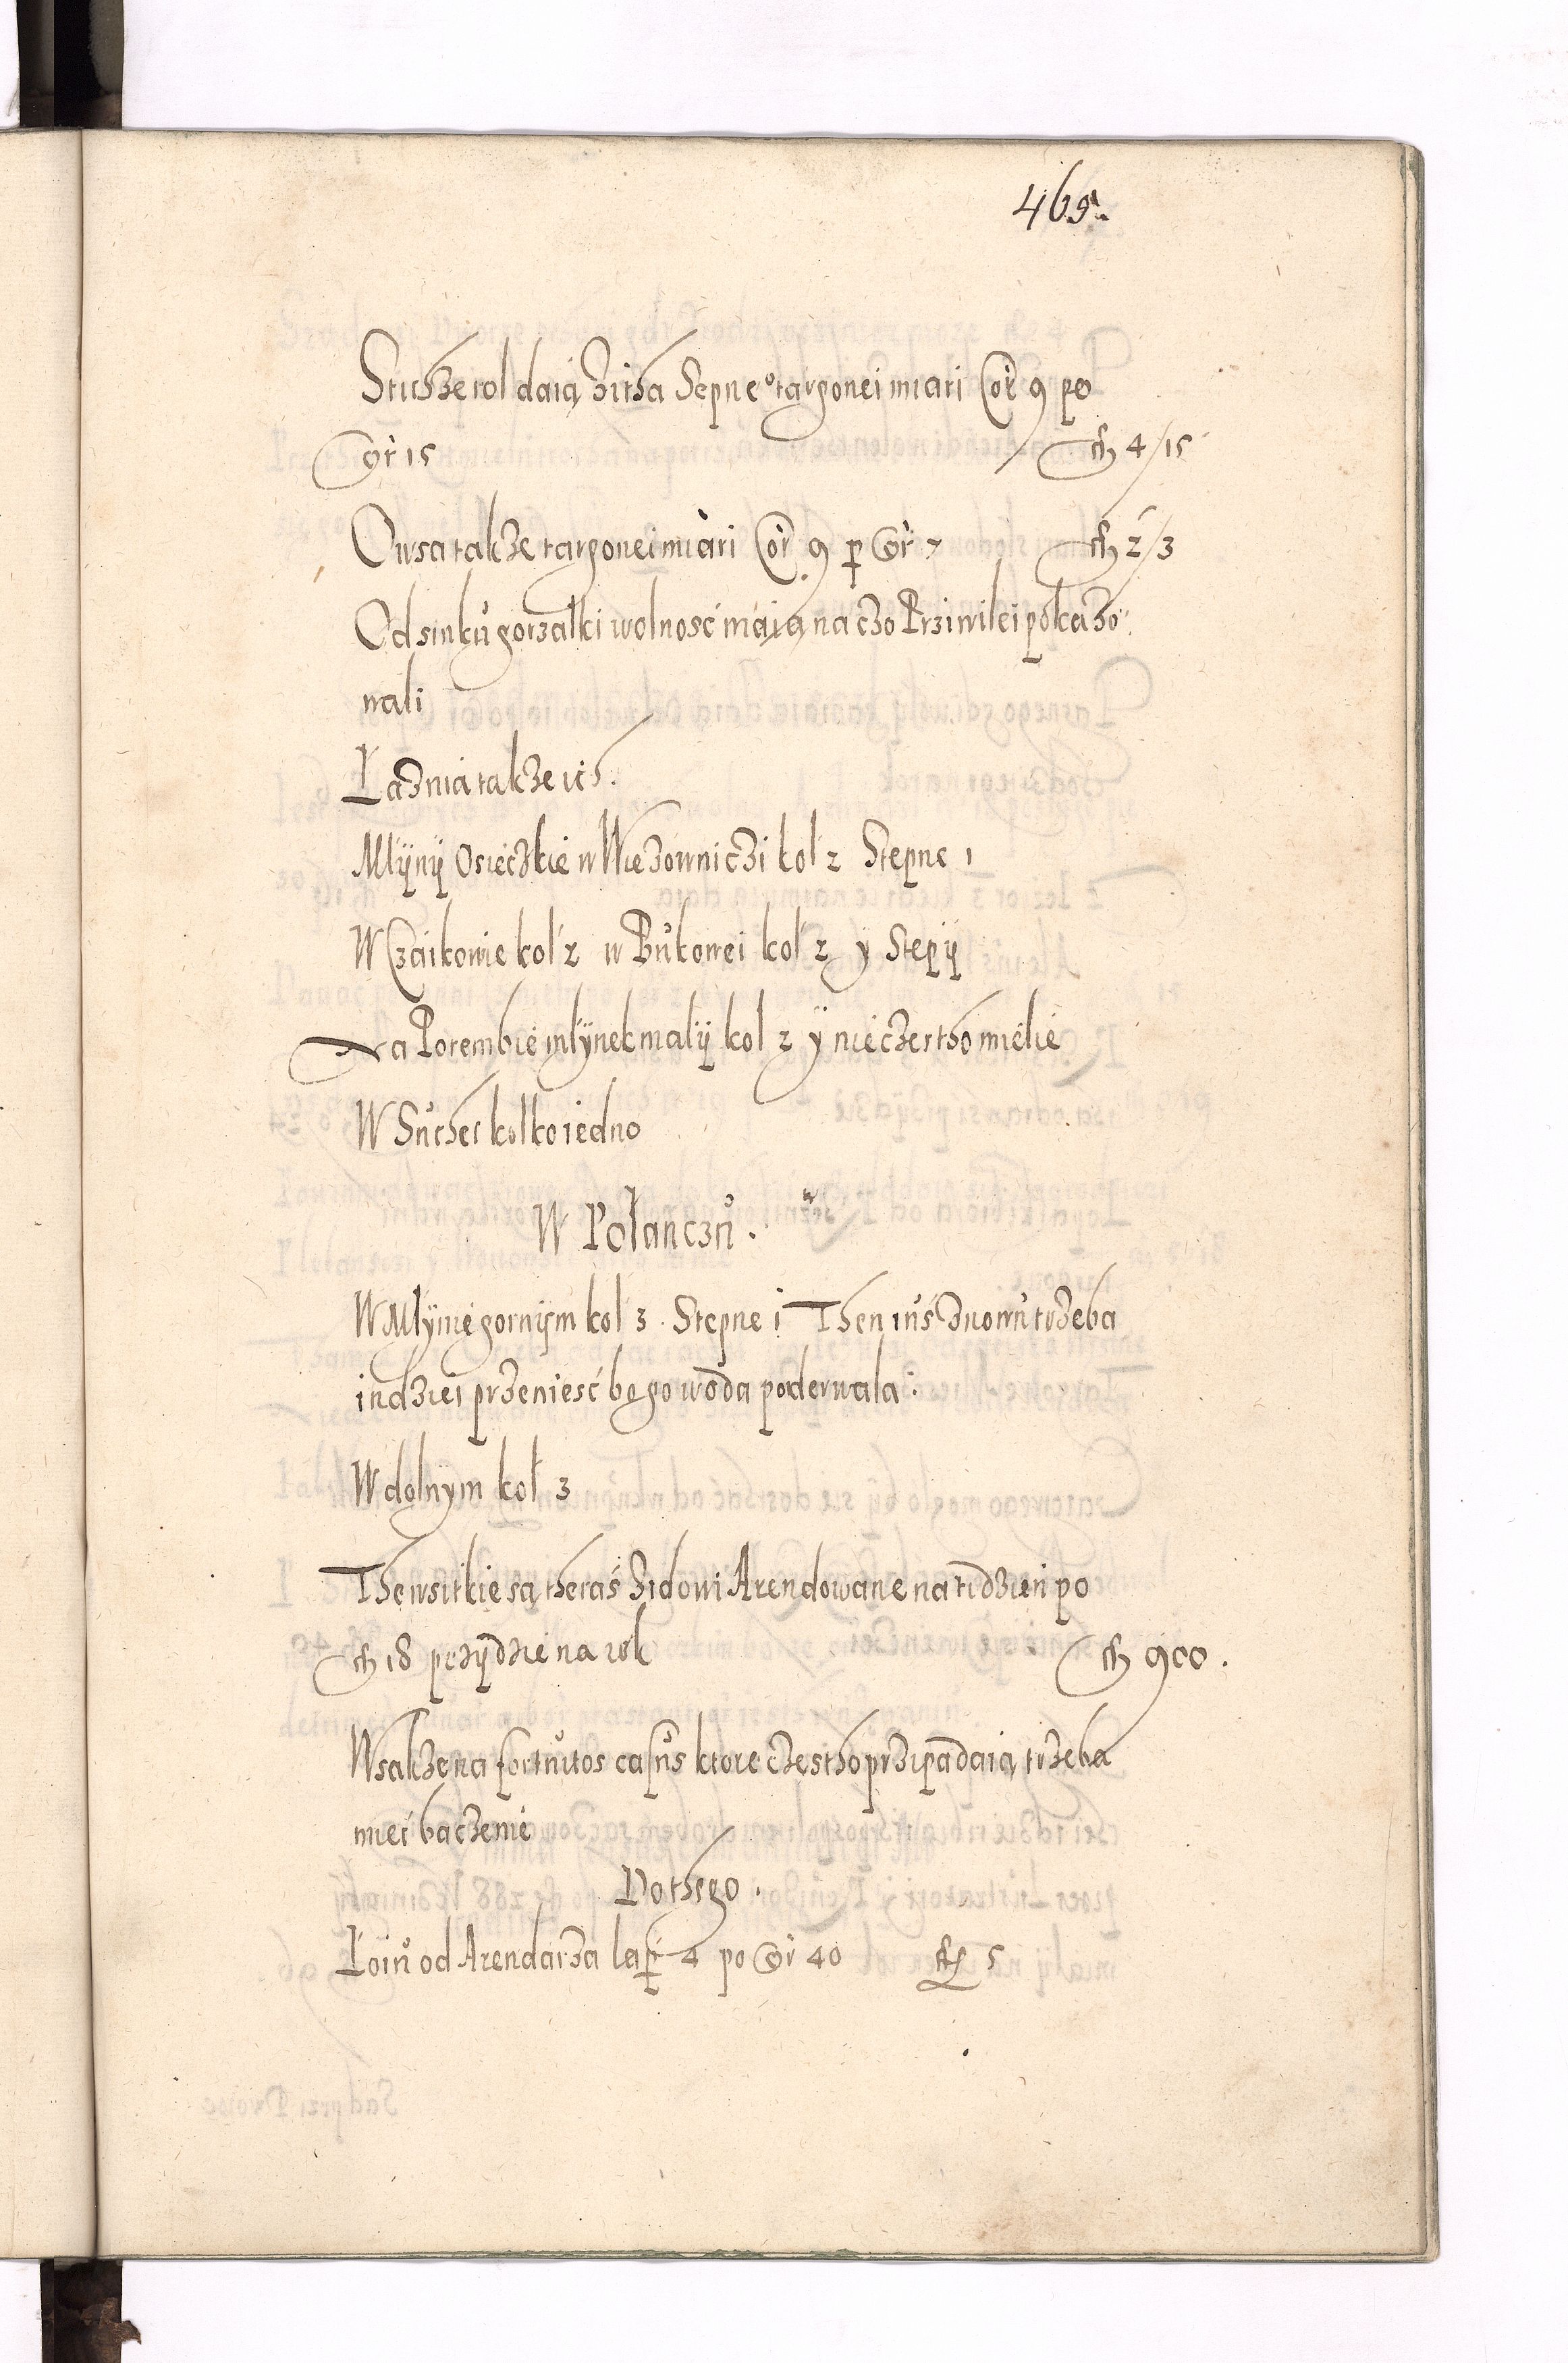 469.
Stichże rol daią żitha Sepne° targonei miari Cor 9 po
Gr 15 fl 4/15
Owsa także targonei miari Cor 9 p Gr 7 fl 2/3
Od sinku gorzałki wolnosć maią na czo Przivilei pokazo
wali
Łaznia także ich.
Młyny Osieczkie w Wiezowniczi kol 2 Stepne 1
W Czaikowie kol 2 w Bukowei kol 2 y Stepy
Na Porembie młynek maly kol 2 y nie czestho miele
W Suchei kolko iedno
W Połanczu.
W Młynie gornym kol 3. Stepne 1 Then iuś znowu trzeba
indziei przeniesć bo go woda poderwala.
W dolnym koł 3
The wsitkie są theraś Żidowi Arendowane na tidzien po
fl 18 przydzie na rok fl 900.
Wsakze na fortuitos casus ktore czestho przipadaią trzeba
miec baczenie
Do thego.
Łoiu od Arendarza lap 4 po Gr 40 fl 5